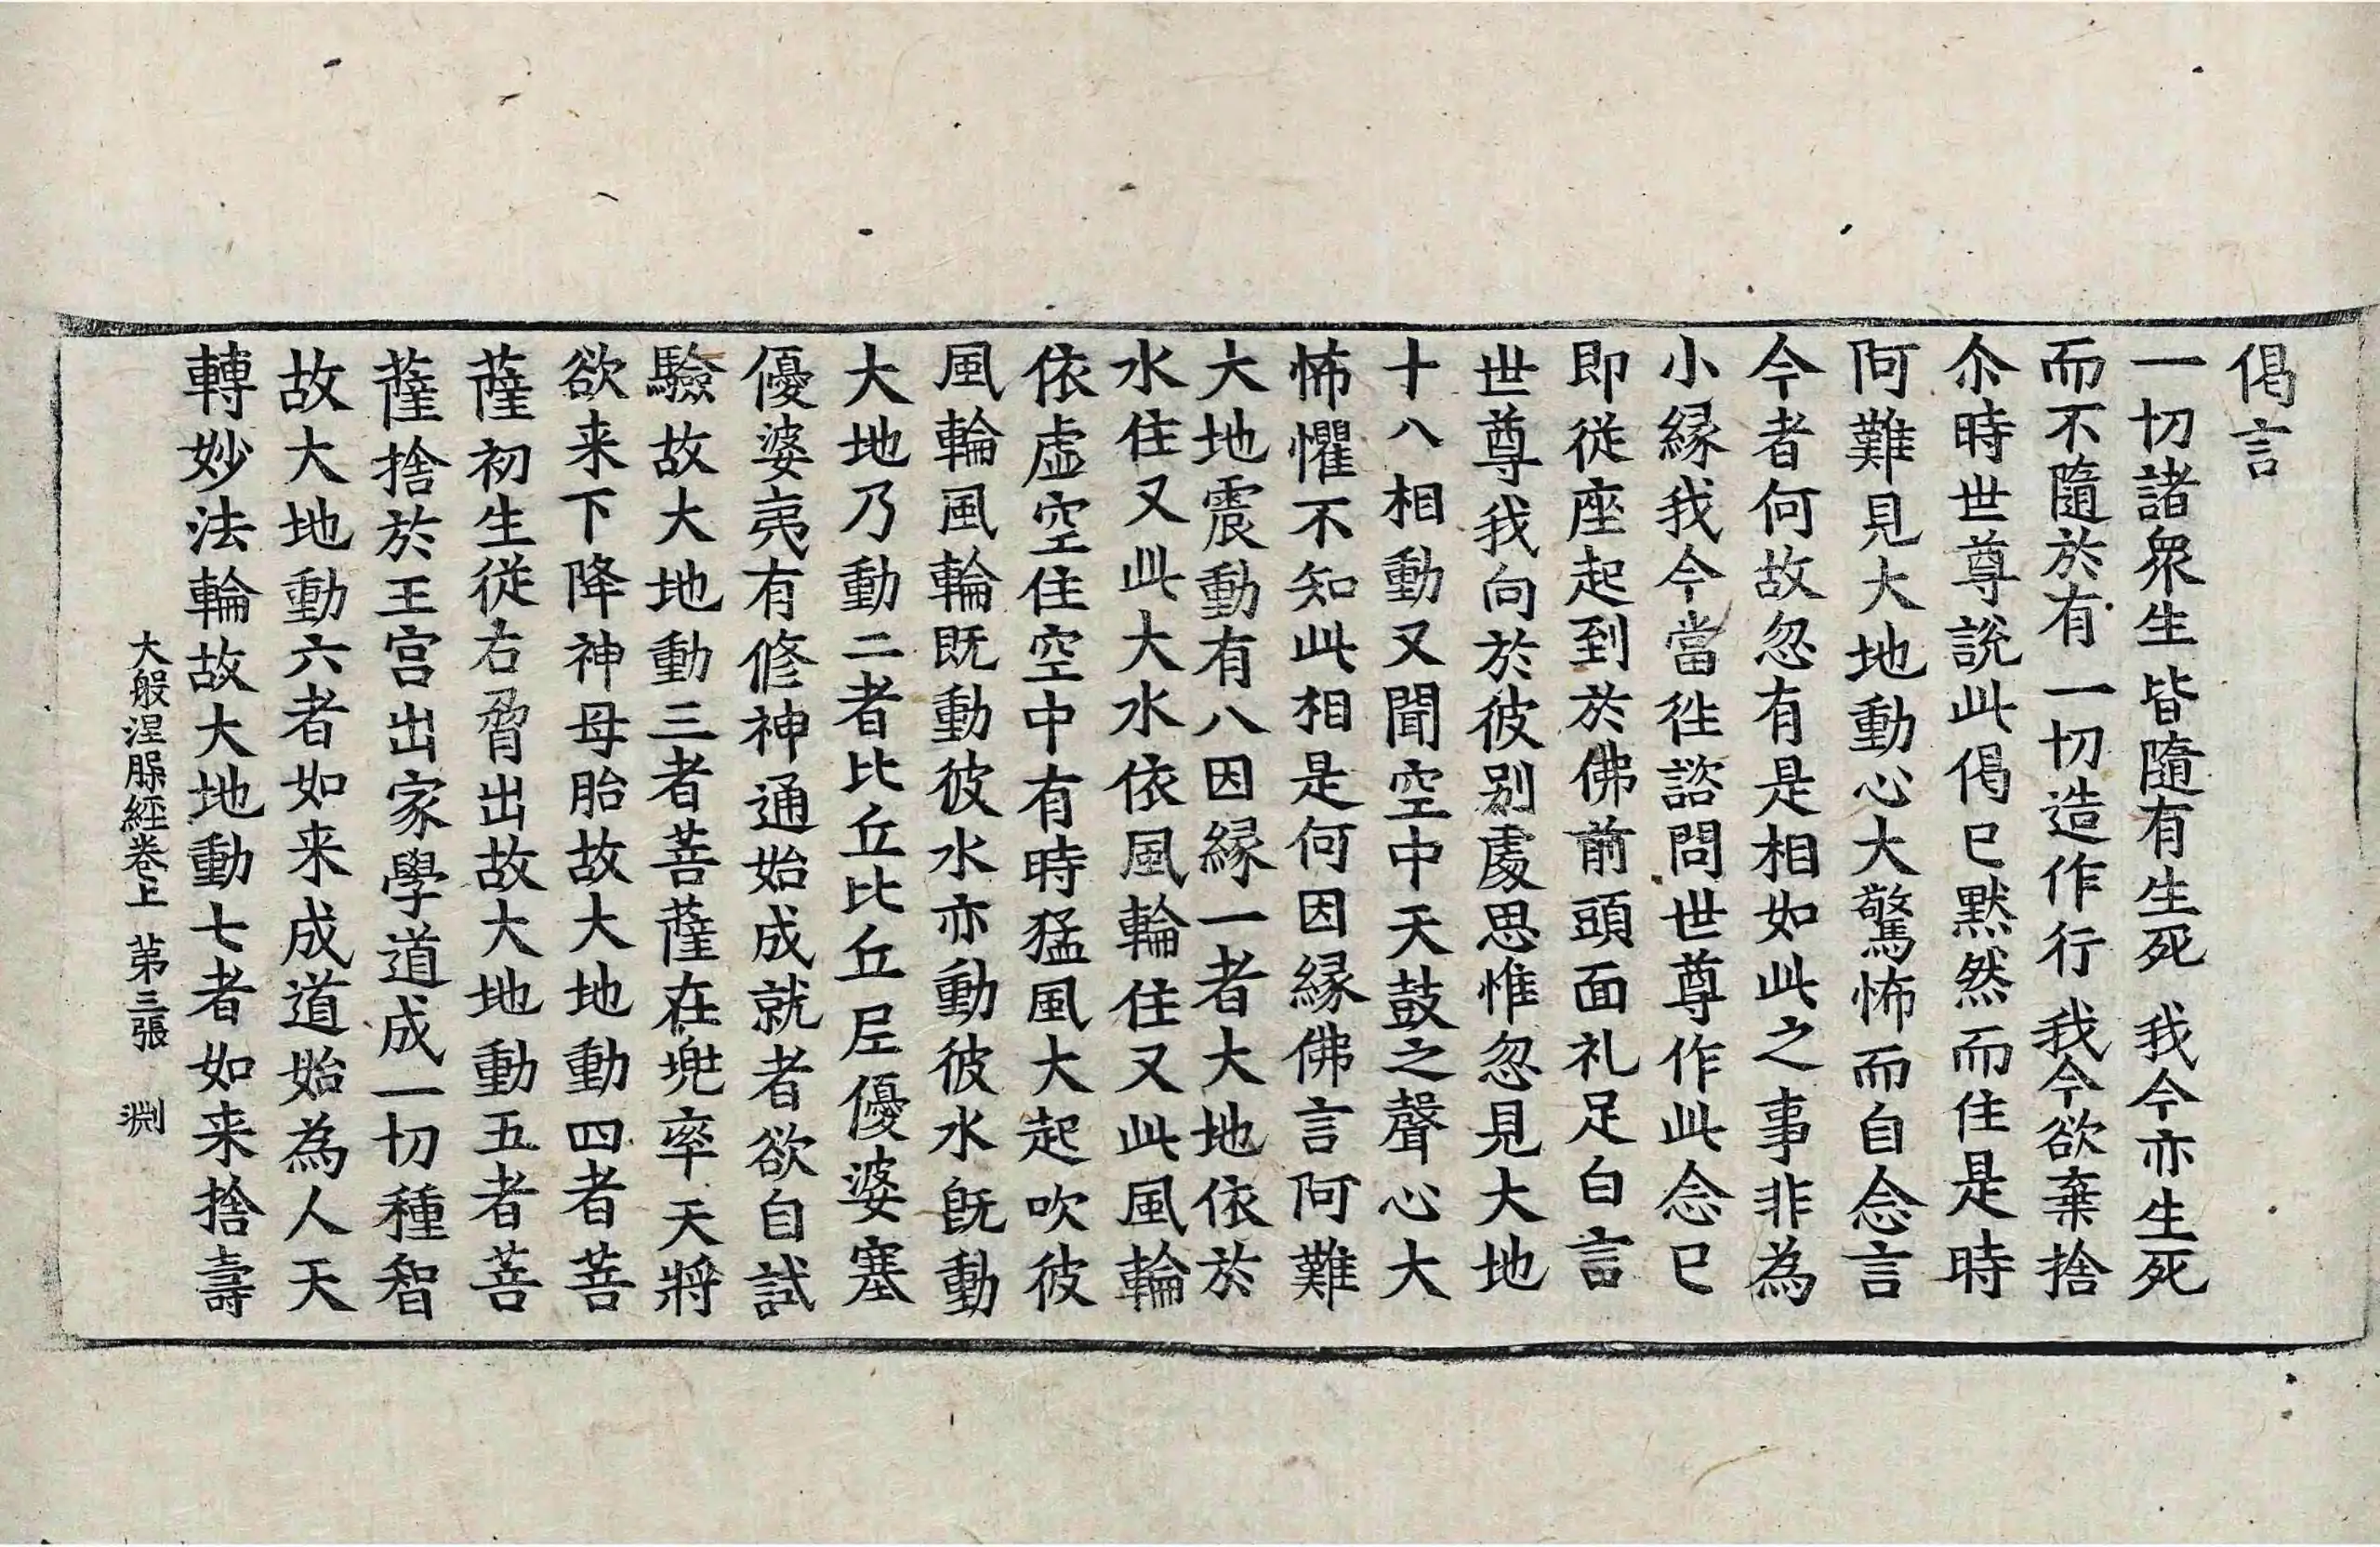 偈言
一切諸衆生 皆隨有生死 我今亦生死
而不隨於有 一切造作行 我今欲棄捨
尒時世尊說此偈已默然而住是時
阿難見大地動心大驚怖而自念言
今者何故忽有是相如此之事非為
小縁我今當往諮問世尊作此念已
即従座起到於佛前頭面礼足白言
世尊我向於彼别處思惟忽見大地
十八相動又聞空中天鼓之聲心大
怖懼不知此相是何因縁佛言阿難
大地震動有八因縁一者大地依於
水住又此大水依風輪住又此風輪
依虛空住空中有時猛風大起吹彼
風輪風輪既動彼水亦動彼水旣動
大地乃動二者比丘比丘尼優婆塞
優婆夷有修神通始成就者欲自試
驗故大地動三者菩薩在兜率天將
欲来下降神母胎故大地動四者菩
薩初生従右脅出故大地動五者菩
薩捨於王宮出家學道成一切種智
故大地動六者如来成道始為人天
轉妙法輪故大地動七者如来捨壽
大般涅槃經卷上 第三張 渕